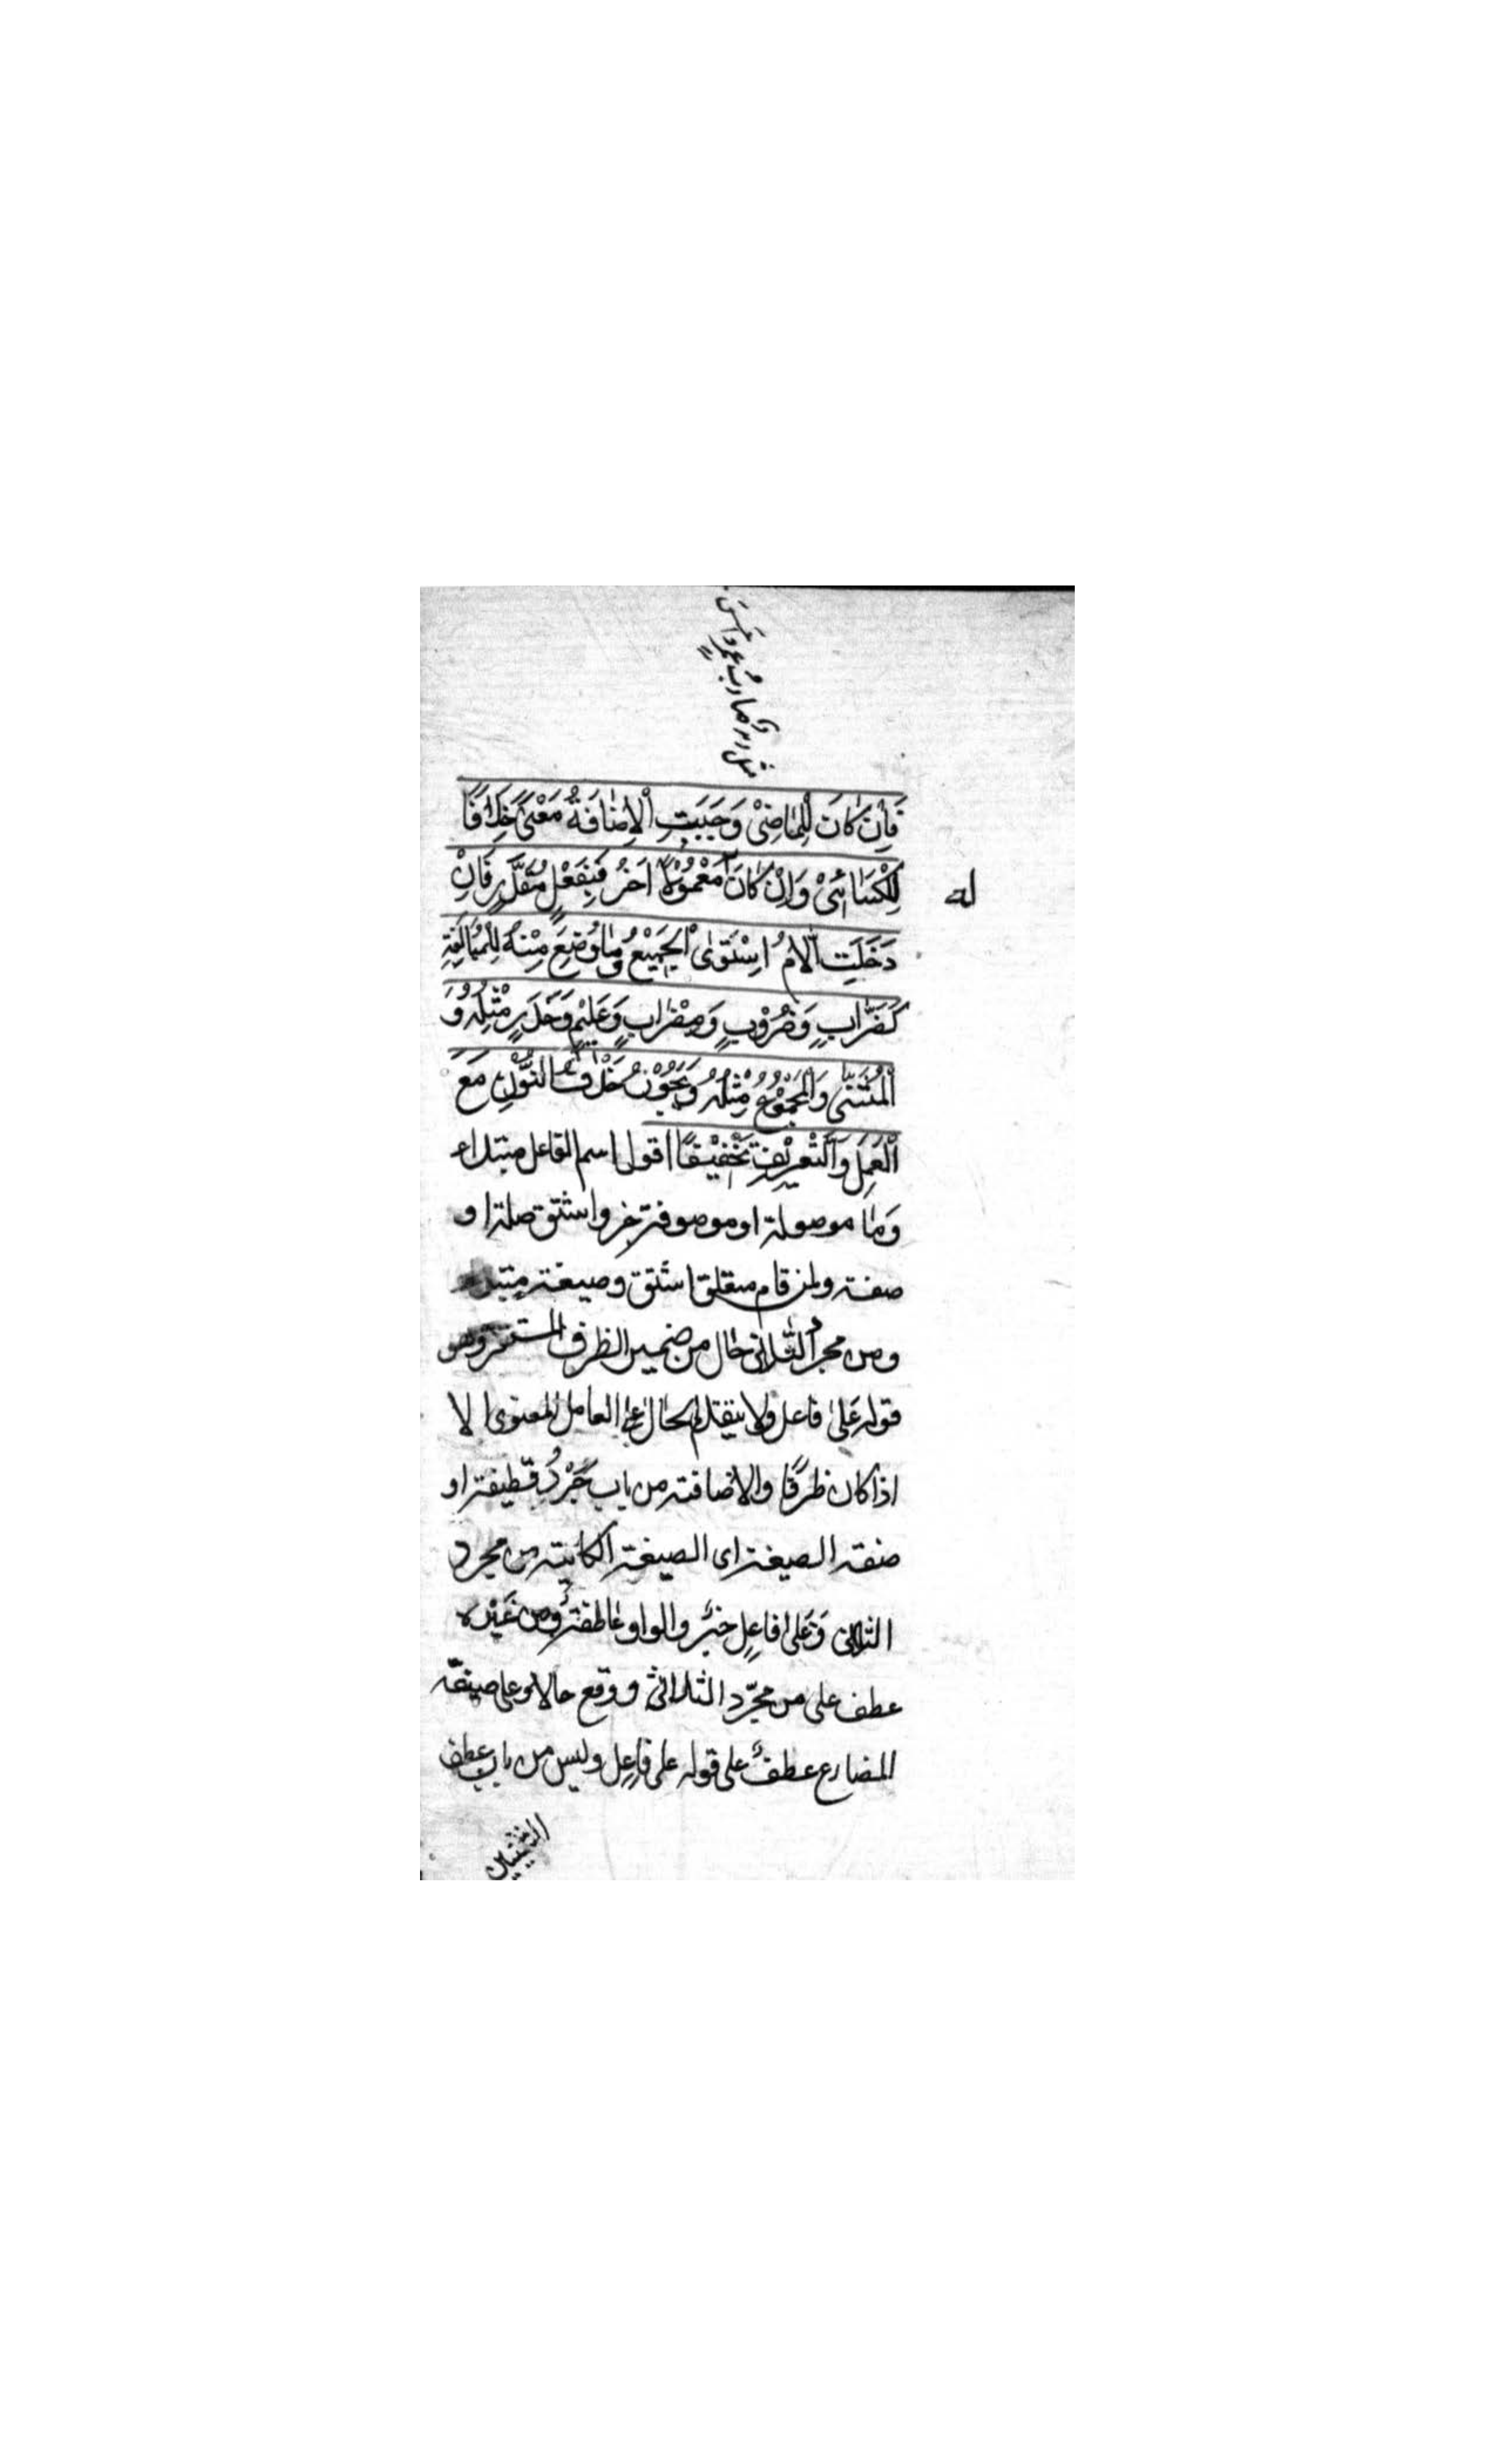 مثل زيد ضارب عمرو امس
فَاِنْ كَانَ لِلْمَاضِىْ وَجَبَتِ الْاِضَافَةُ مَعْنًى خِلَافًا
لِلْكِسَائِىْ وَاِنْ كَانَ مَعْمُوْلًا اٰخَرُ فَبِفَعْلٍ مُقَدَّرٍ فَاِنْ
له
دَخَلَتِ اللَّامُ اِسْتَوٰى الْجَمِيْعُ وَمَا وُضِعَ مِنْهُ لِلْمُبَالَغَةِ
كَضَرَّابٍ وَضَرُوْبٍ وَمِضْرَابٍ وَعَلِيْمٍ وَحَذِرٍ مِثْلُهُ وَ
الْمُثَنّٰى وَالْمَجْمُوْعُ مِثْلُهُ وَيَجُوْزُ حَذْفُ النُّوْنِ مَعَ
الْعَمَلِ وَالتَّعْرِيْفِ تَخْفِيْفًا اقول اسم الفاعل مبتداء
وَمَا موصولة او موصوفة خبر واشتق صلة او
صفة ولمن قام متعلق اشتق وصيغة مبتداء
ومن مجرد الثلاثى حال من ضمير الظرف المستقر وهو
قوله عَلىٰ فاعل ولا يتقدم الحال على العامل المعنوى الا
اذا كان ظرفًا والاضافة من باب جَرْدُ قطيفة او
صفة الصيغة اى الصيغة الكاينة من مجرد
الثلاثى وَعَلىٰ فاعِلٍ خبرٌ والواو عاطفةٌ ومن غَيْرِه
عطف على من مجرّد الثلاثى ووقع حالا وعلى صيغة
المضارع عطفٌ على قوله على فاعِل وليس من باب عطف
الشيئين